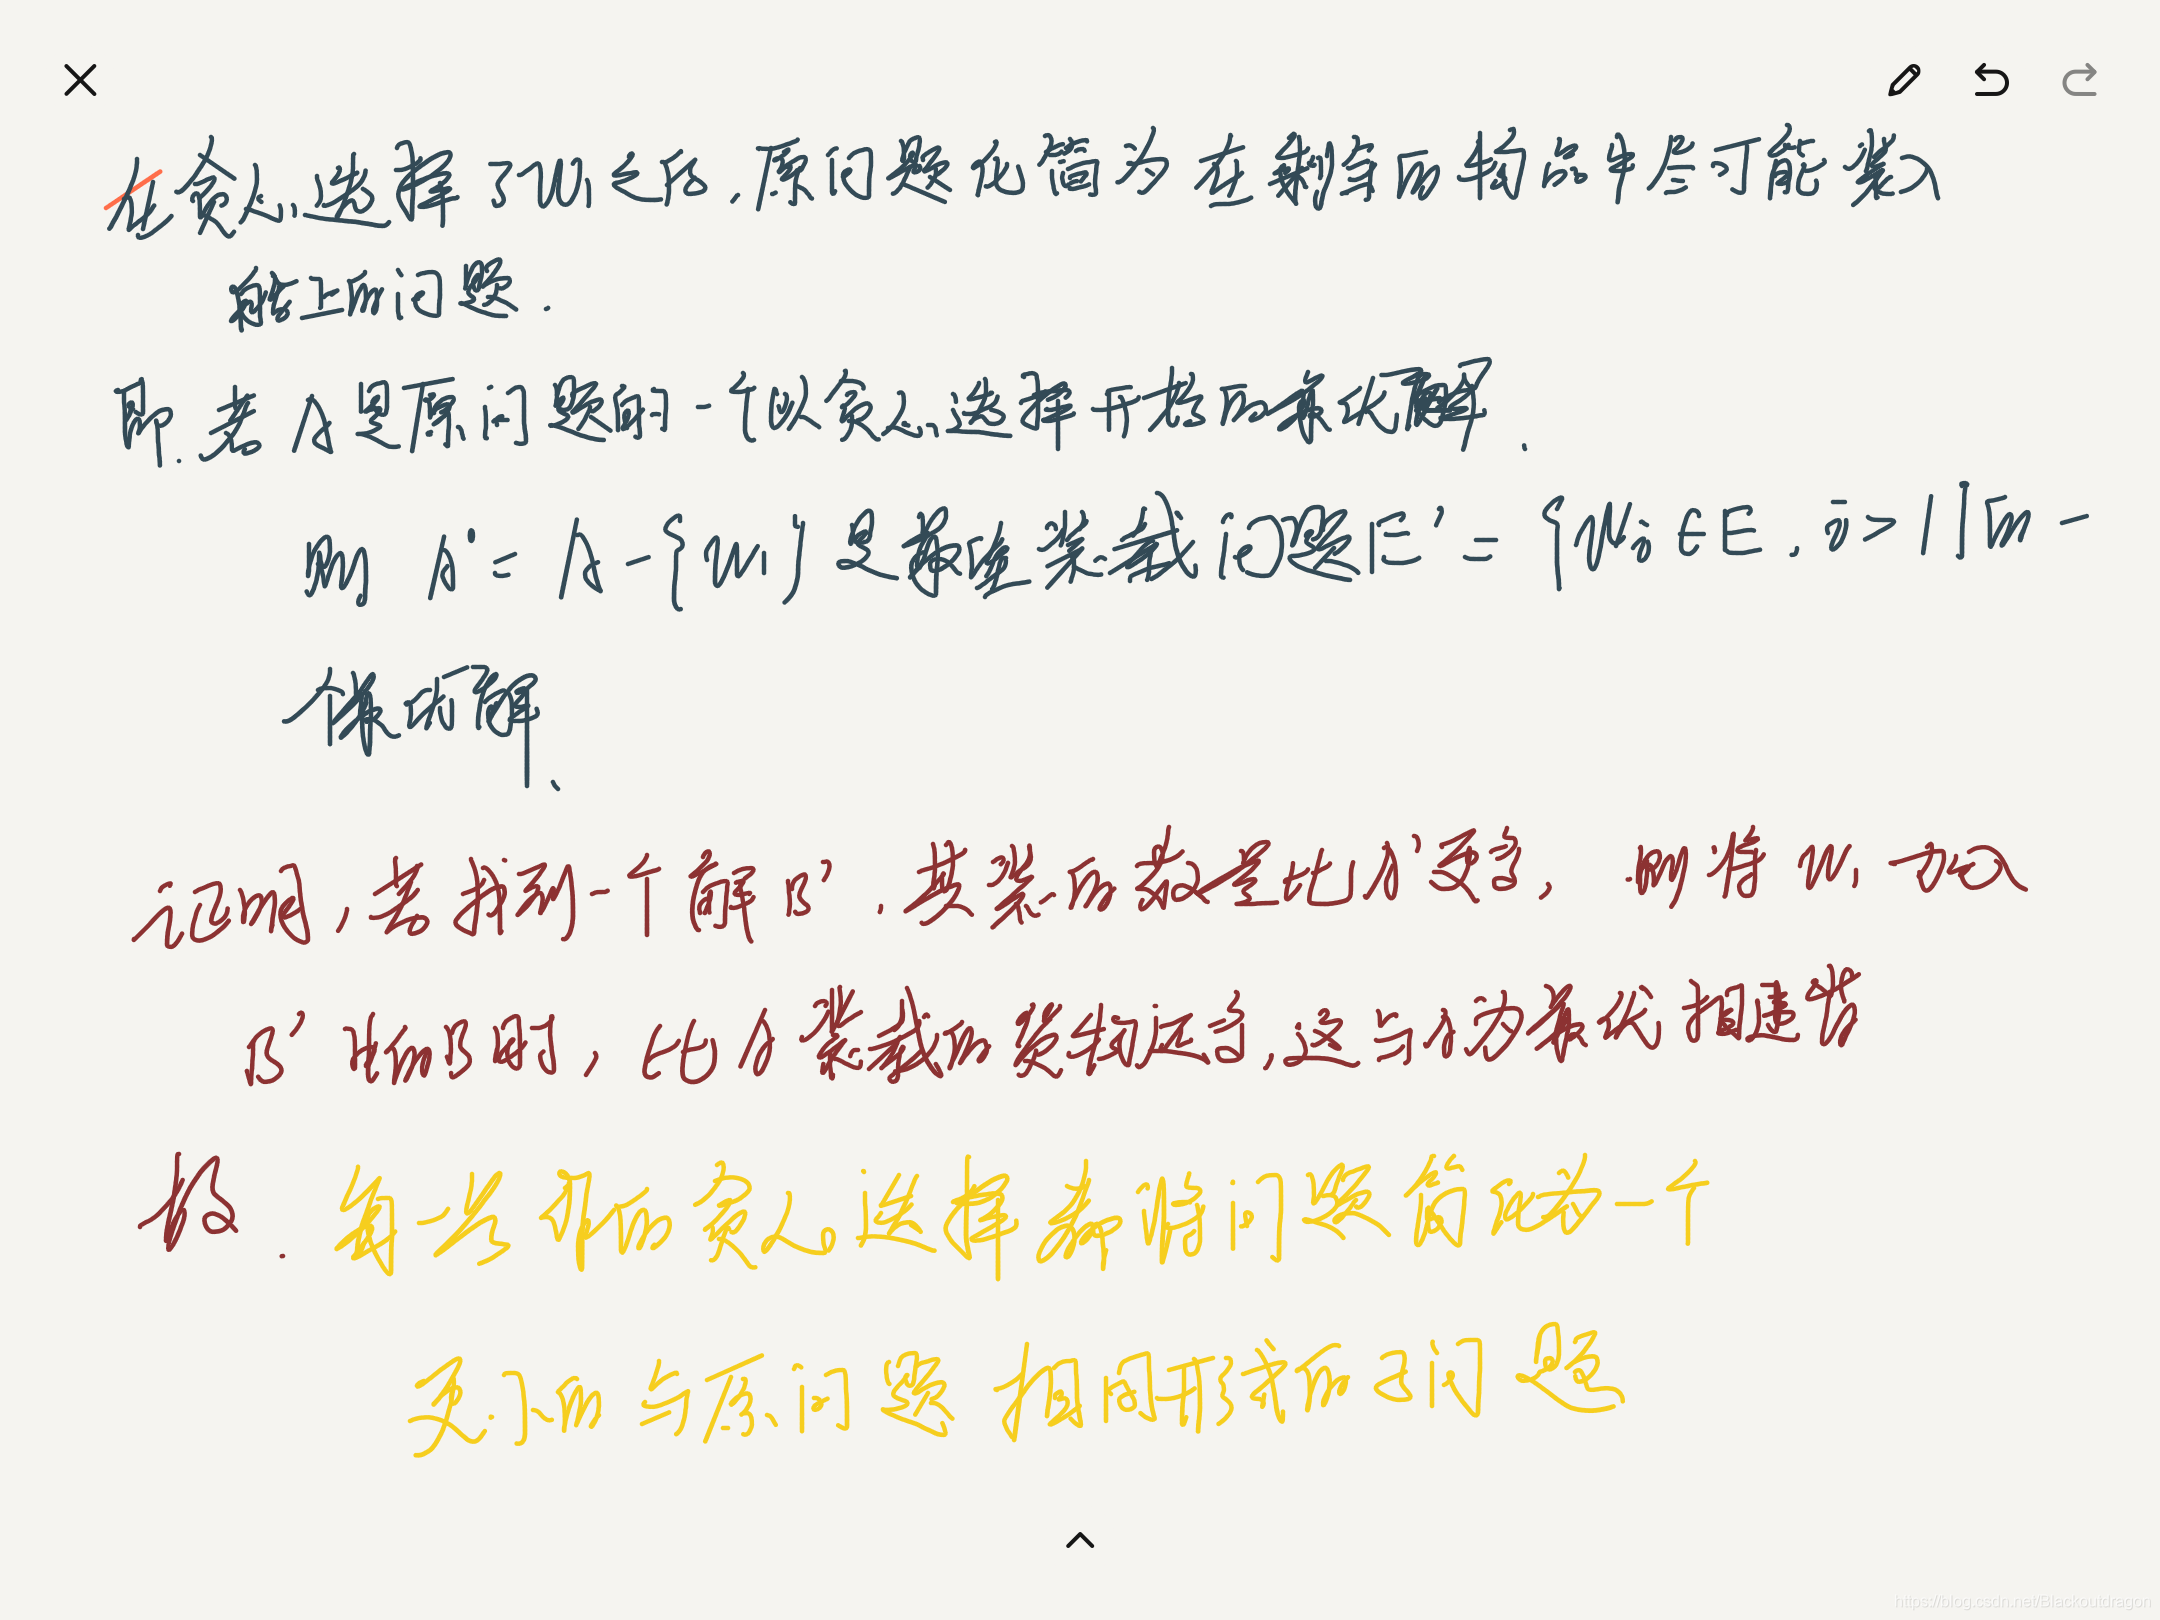 在贪心选择了W1之后,原问题化简为在剩余的物品中尽可能装入
船上的问题.
即.若A是原问题的一个以贪心选择开始的最优解.
则 A' = A - {W1} 是最优装载问题E' = {Wi ∈ E, i > 1}的一
个最优解、
证明,若找到一个解B',其装的数量比A'更多, 则将 W1 加入
B' 中的B时,比A装载的货物还多,这与A为最优相违背
故. 每一步 的贪心选择都将问题简化为一个
更小的与原问题相同形式的子问题
https://blog.csdn.net/Blackoutdragon